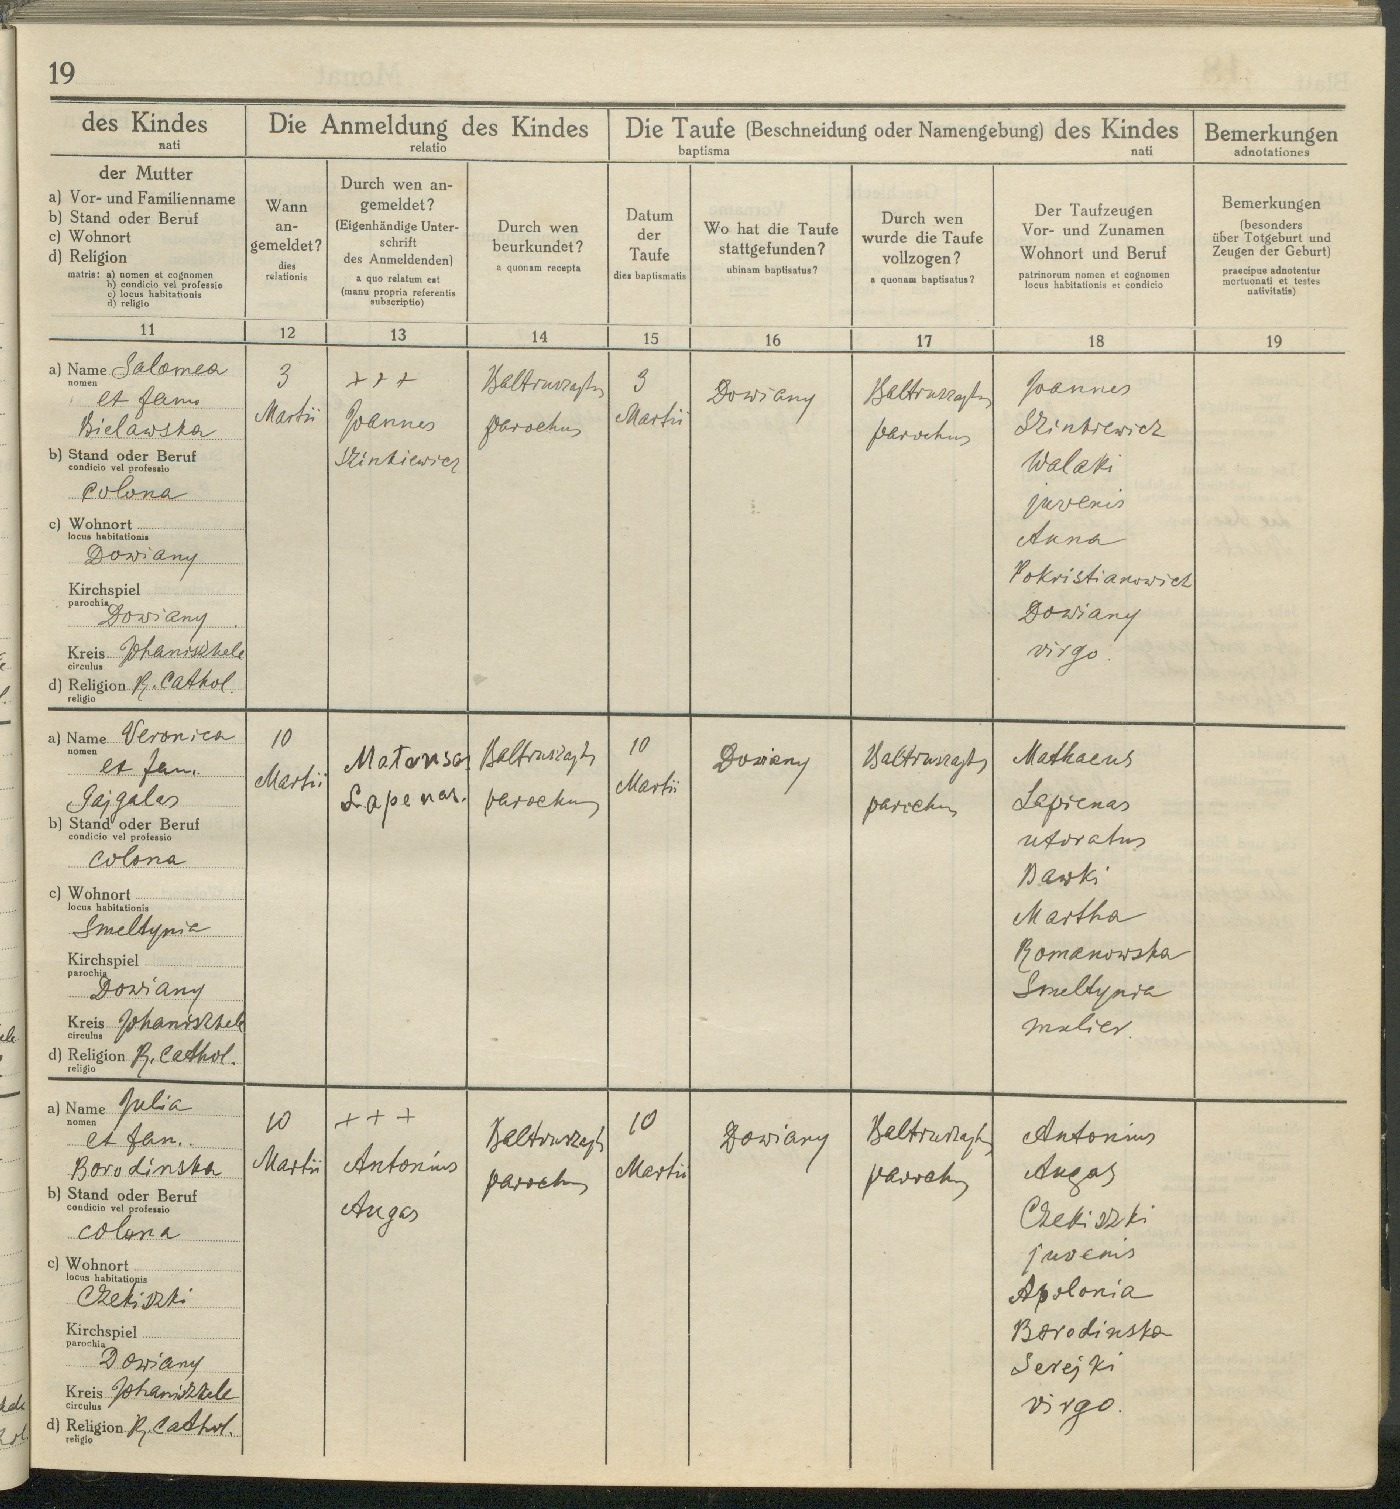 19
des Kindes
nati
Die Anmeldung des Kindes
relatio
Die Taufe (Beschneidung oder Namengebung) des Kindes
baptisma nati
Bemerkungen
adnotationes
der Mutter
a) Vor- und Familienname
b) Stand oder Beruf
c) Wohnort
d) Religion
matris: a) nomen et cognomen
b) condicio vel professio
c) locus habitationis
d) religio
Wann
an-
gemeldet?
dies
relationis
Durch wen an-
gemeldet?
(Eigenhändige Unter-
schrift
des Anmeldenden)
a quo relatum est
(manu propria referentis
subscriptio)
Durch wen
beurkundet?
a quonam recepta
Datum
der
Taufe
dies baptismatis
Wo hat die Taufe
stattgefunden?
ubinam baptisatus?
Durch wen
wurde die Taufe
vollzogen?
a quonam baptisatus?
Der Taufzeugen
Vor- und Zunamen
Wohnort und Beruf
patrinorum nomen et cognomen
locus habitationis et condicio
Bemerkungen
(besonders
über Totgeburt und
Zeugen der Geburt)
praecipue adnotentur
mortuonati et testes
nativitatis)
11 12 13 14 15 16 17 18 19
a) Name Salomea
nomen
et fam.
Bielawska
b) Stand oder Beruf
condicio vel professio
colona
c) Wohnort
locus habitationis
Dowiany
Kirchspiel
parochia
Dowiany
Kreis Johaniszkele
circulus
d) Religion R. Cathol.
religio
3
Martii
+ + +
Joannes
Szinkiewicz
Baltruszajtys
parochus
3
Martii
Dowiany
Baltruszajtys
parochus
Joannes
Szinkiewicz
Walaki
juvenis
Anna
Pokristianowicz
Dowiany
virgo.
a) Name Veronica
nomen
et fam.
Gajgalas
b) Stand oder Beruf
condicio vel professio
colona
c) Wohnort
locus habitationis
Smeltynia
Kirchspiel
parochia
Dowiany
Kreis Johaniszkele
circulus
d) Religion R. Cathol.
religio
10
Martii
Lapenas.
Baltruszajtys
parochus
10
Martii
Dowiany
Baltruszajtys
parochus
Mathaeus
Lapienas
uxoratus
Bawki
Martha
Romanowska
Smeltynia
mulier.
a) Name Julia
nomen
et fam.
Borodinska
b) Stand oder Beruf
condicio vel professio
colona
c) Wohnort
locus habitationis
Czekiszki
Kirchspiel
parochia
Dowiany
Kreis Johaniszkele
circulus
d) Religion R. Cathol.
religio
10
Martii
+ + +
Antonius
Augas
Baltruszajtys
parochus
10
Martii
Dowiany
Baltruszajtys
parochus
Antonius
Augas
Czekiszki
juvenis
Apolonia
Borodinska
Serejki
virgo.